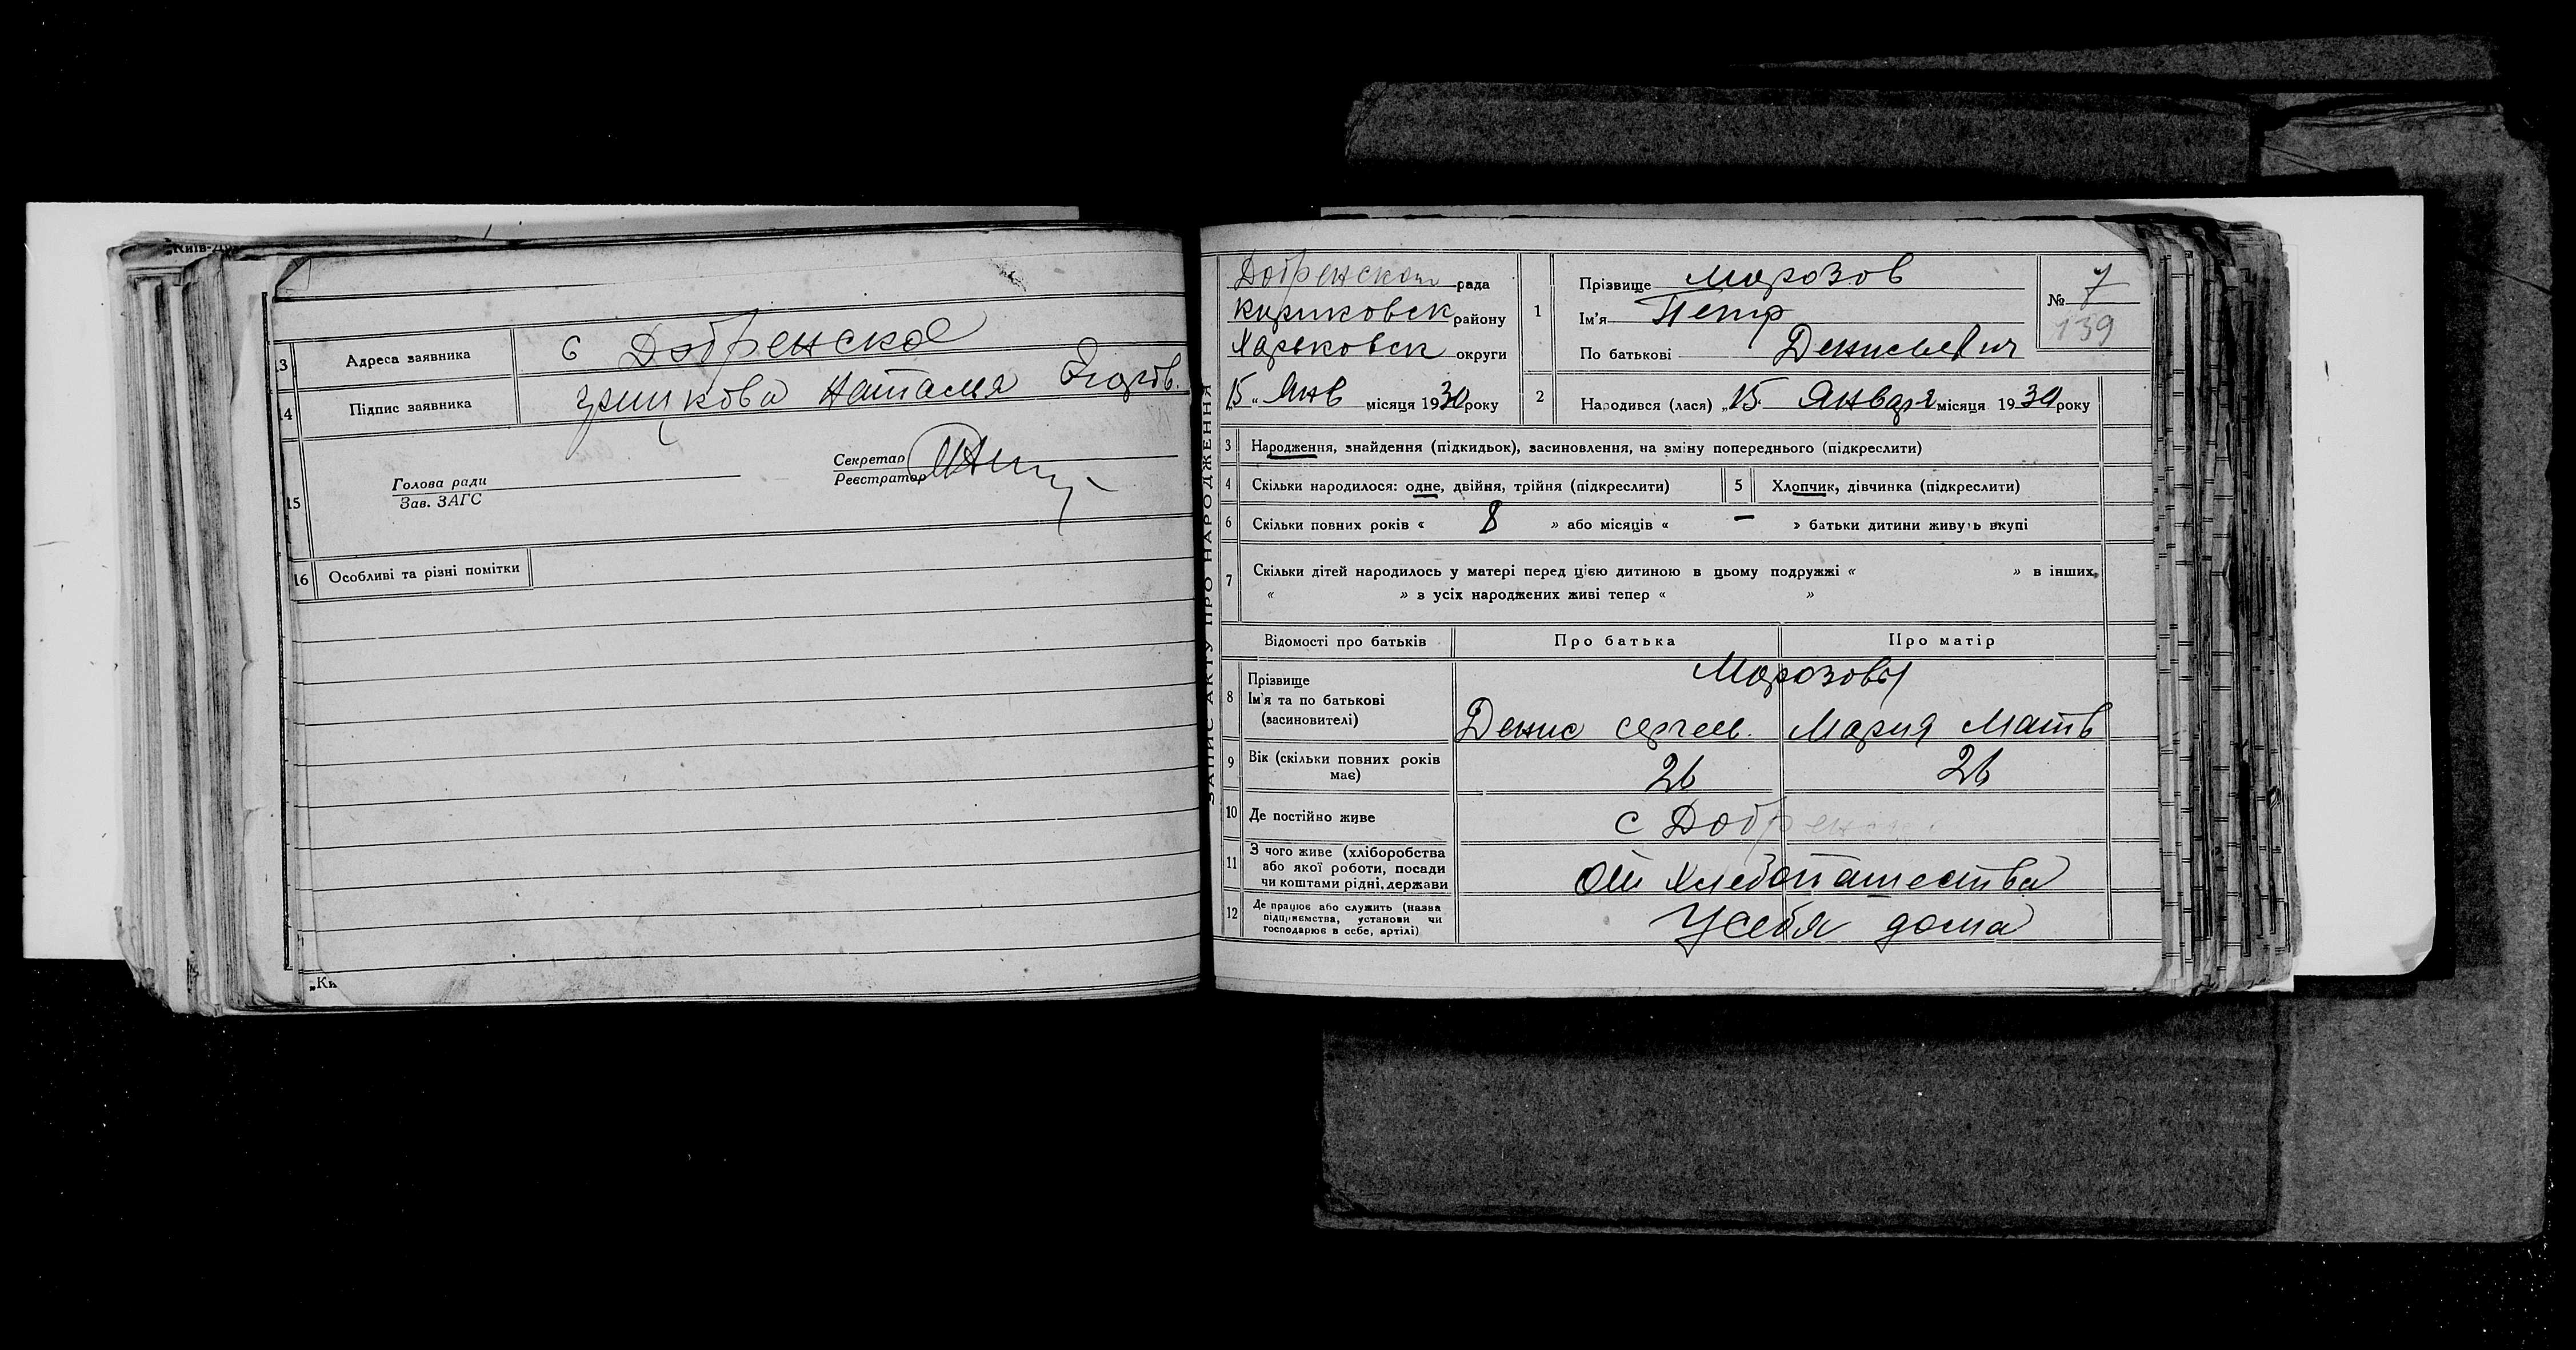 „Київ-Др
13 Адреса заявника с Добренское
14 Підпис заявника Наталья Егоров.
15 Голова ради
Зав. ЗАГС
Секретар
Реєстратор
16 Особливі та різні помітки
„Ки
ЗАПИС АКТУ ПРО НАРОДЖЕННЯ
Добренской рада
району
Харьковск округи
„15„ Янв місяця 1930 року
1 Прізвище Морозов
Ім'я Петр
По батькові Денисьевич
№ 7
139
2 Народився (лася) „15 Января місяця 1930 року
3 Народження, знайдення (підкидьок), засиновлення, на зміну попереднього (підкреслити)
4 Скільки народилося: одне, двійня, трійня (підкреслити) 5 Хлопчик, дівчинка (підкреслити)
6 Скільки повних років « 8 » або місяців « – » батьки дитини живуть вкупі
7 Скільки дітей народилось у матері перед цією дитиною в цьому подружжі « » в інших
« » з усіх народжених живі тепер « »
Відомості про батьків Про батька Про матір
8 Прізвище Морозовы
Ім'я та по батькові
(засиновителі) Денис Сергеев. Мария Матв
9 Вік (скільки повних років має) 26 26
10 Де постійно живе с Добрен
11 З чого живе (хліборобства
або якої роботи, посади
чи коштами рідні, держави От Хлебопашества
12 Де працює або служить (назва
підприємства, установи чи
господарює в себе, артілі) У себя дома